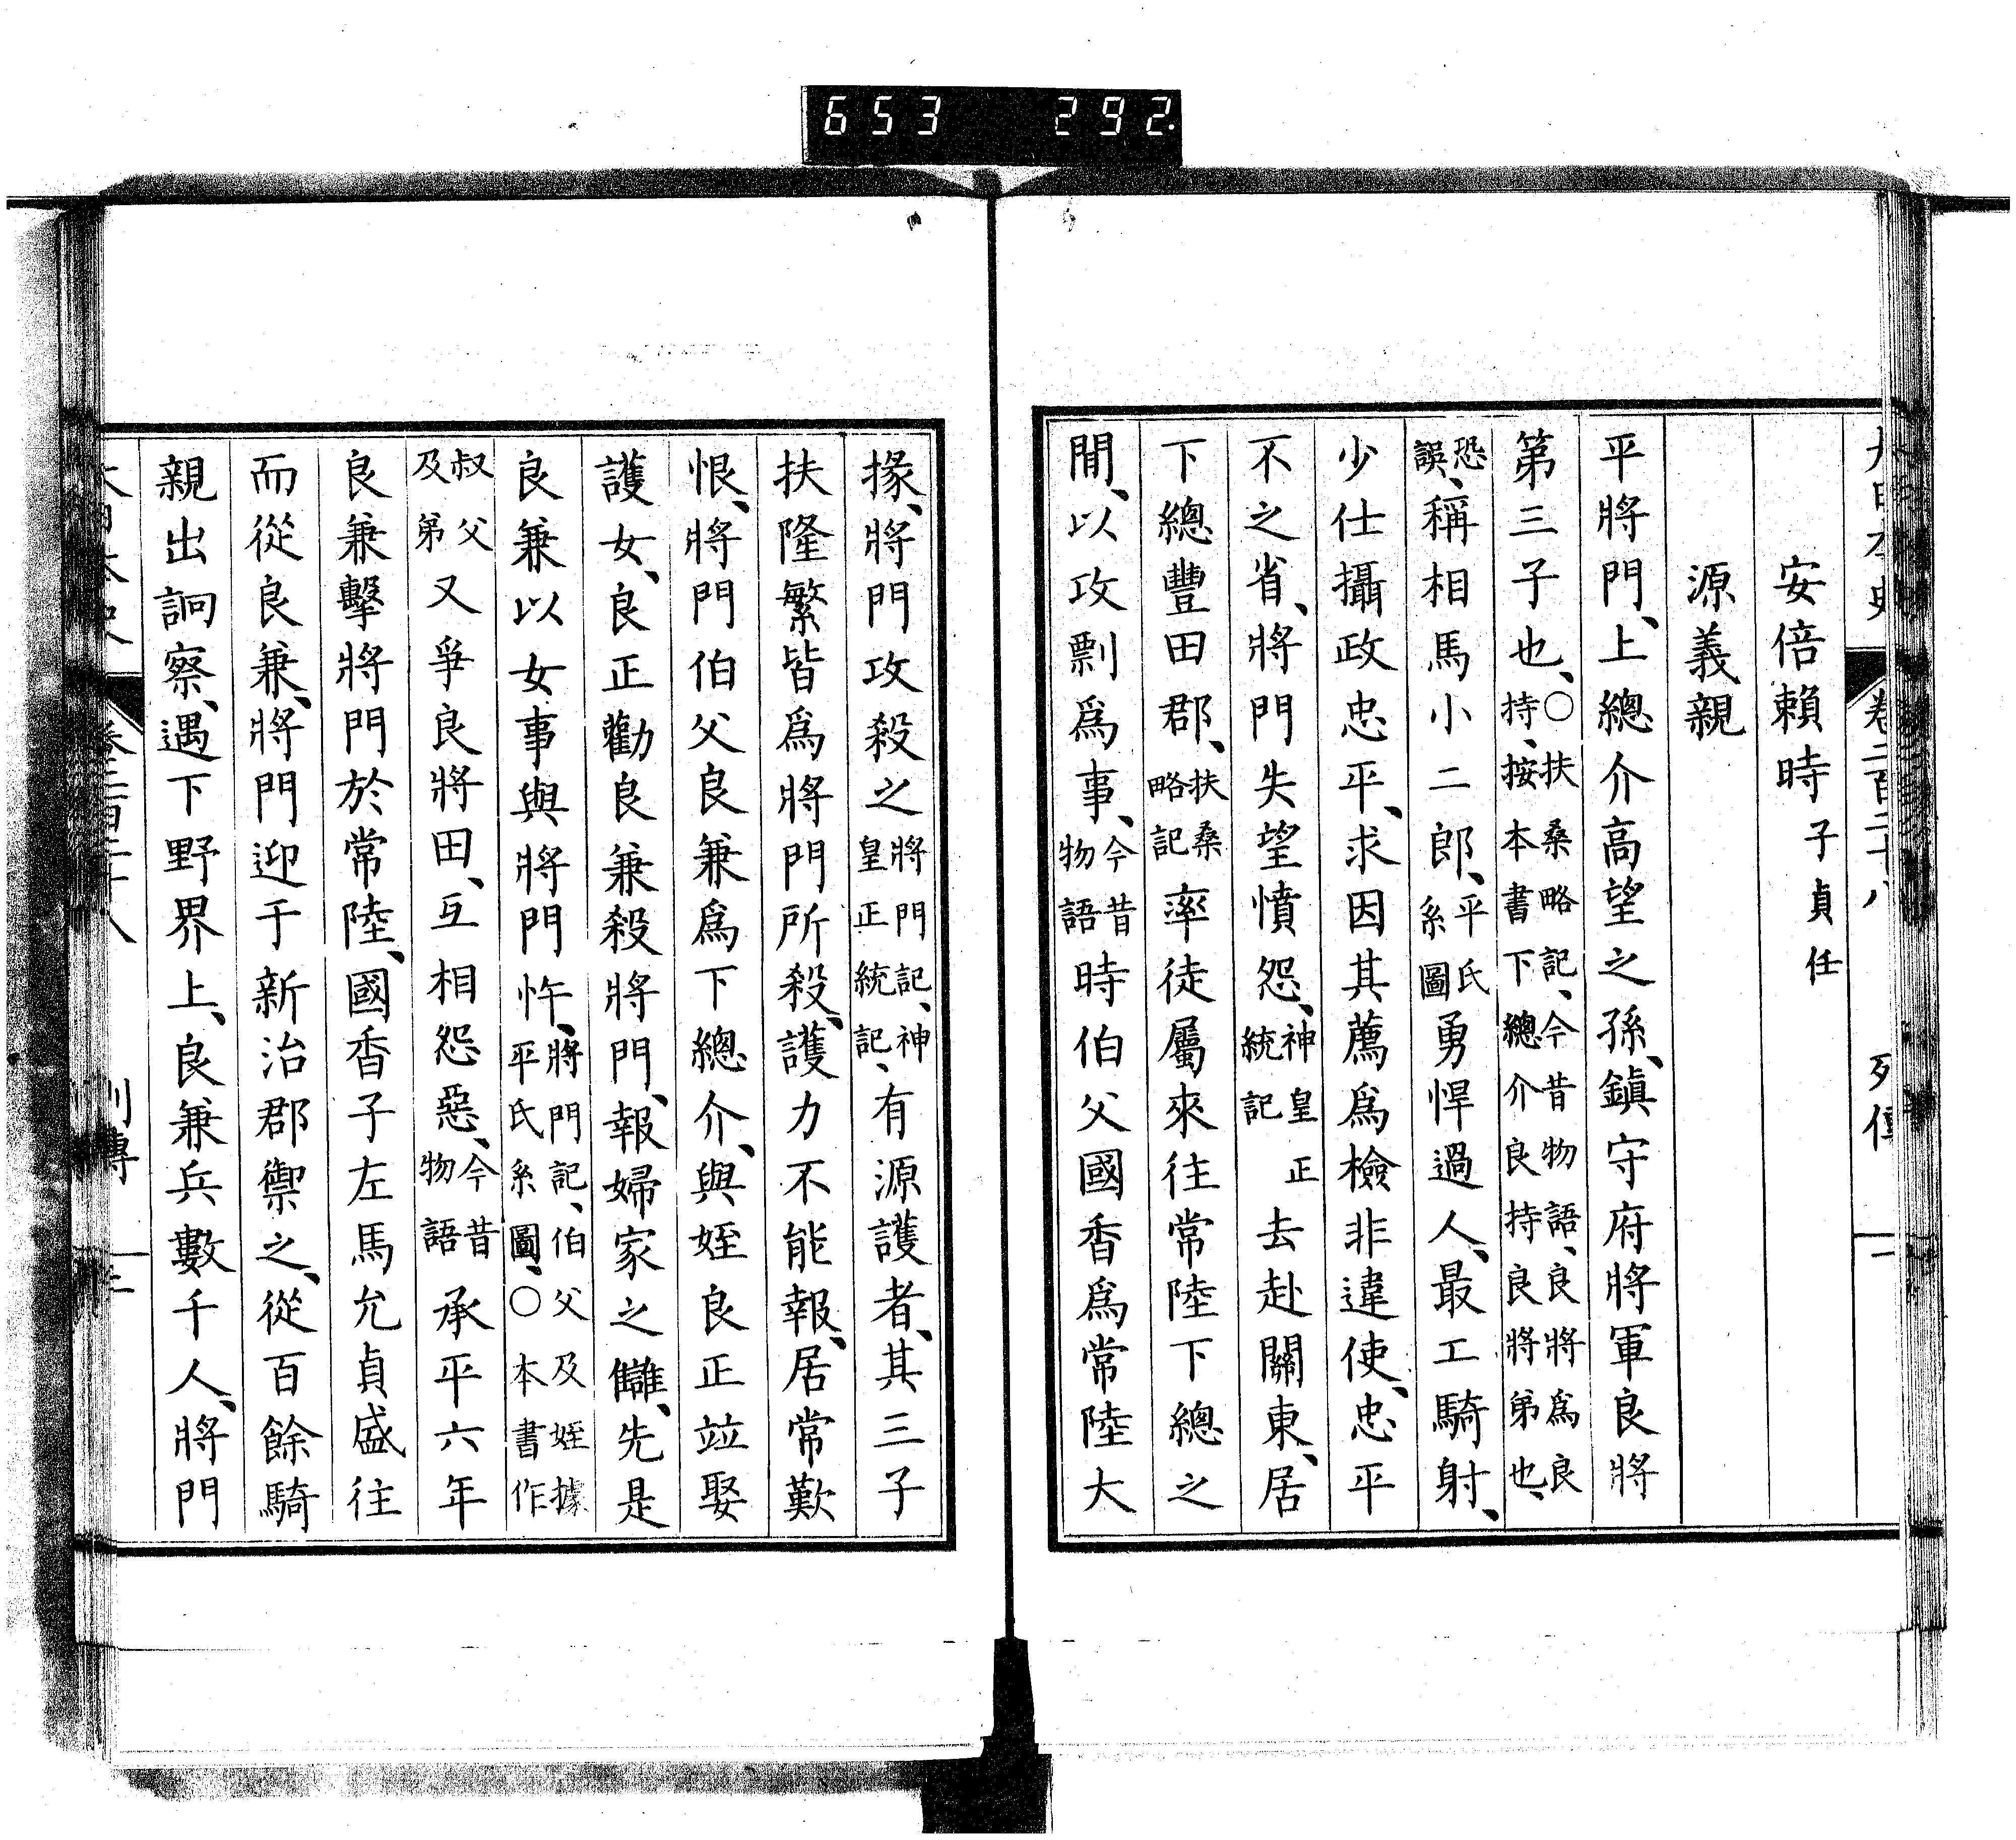 653 292
安倍賴時 子貞任
源義親
平將門、上總介高望之孫、鎭守府將軍良將
第三子也、○扶桑略記、今昔物語、良將爲良持、按本書下總介良持良將弟也、
恐誤、稱相馬小二郎、平氏系圖勇悍過人、最工騎射、
少仕攝政忠平、求因其薦爲檢非違使、忠平
不之省、將門失望憤怨、神皇正統記去赴關東、居
下總豐田郡、扶桑略記率徒屬來往常陸下總之
閒、以攻剽爲事、今昔物語時伯父國香爲常陸大
掾、將門攻殺之將門記、神皇正統記、有源護者、其三子
扶隆繁皆爲將門所殺、護力不能報、居常歎
恨、將門伯父良兼爲下總介、與姪良正竝娶
護女、良正勸良兼殺將門、報婦家之讎、先是
良兼以女事與將門忤、將門記、伯父及姪據平氏系圖、○本書作
叔父及弟又爭良將田、互相怨惡、今昔物語承平六年
良兼擊將門於常陸、國香子左馬允貞盛往
而從良兼、將門迎于新治郡禦之、從百餘騎
親出詗察、遇下野界上、良兼兵數千人、將門